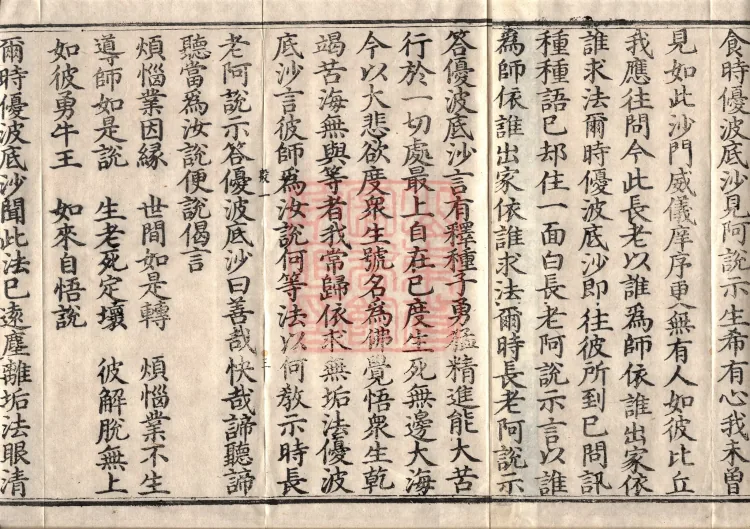 食時優波底沙見阿說示生希有心我未曽
見如此沙門威儀庠序更無有人如彼比丘
我應往問今此長老以誰為師依誰出家依
誰求法爾時優波底沙即往彼所到已問訊
種種語已却住一面白長老阿說示言以誰
為師依誰出家依誰求法爾時長老阿說示
答優波底沙言有釋種子勇猛精進能大苦
行於一切處最上自在已度生死無邊大海
今以大悲欲度衆生號名為佛覺悟衆生乾
竭苦海無與等者我常歸依求無垢法優波
底沙言彼師為汝說何等法以何教示時長
老阿說示答優波底沙曰善哉快哉諦聽諦
聽當為汝說便說偈言
煩惱業因縁　世間如是轉　煩惱業不生
導師如是說　生老死定壞　彼解脫無上
如彼勇牛王　如來自悟說
爾時優波底沙聞此法已遠塵離垢法眼清